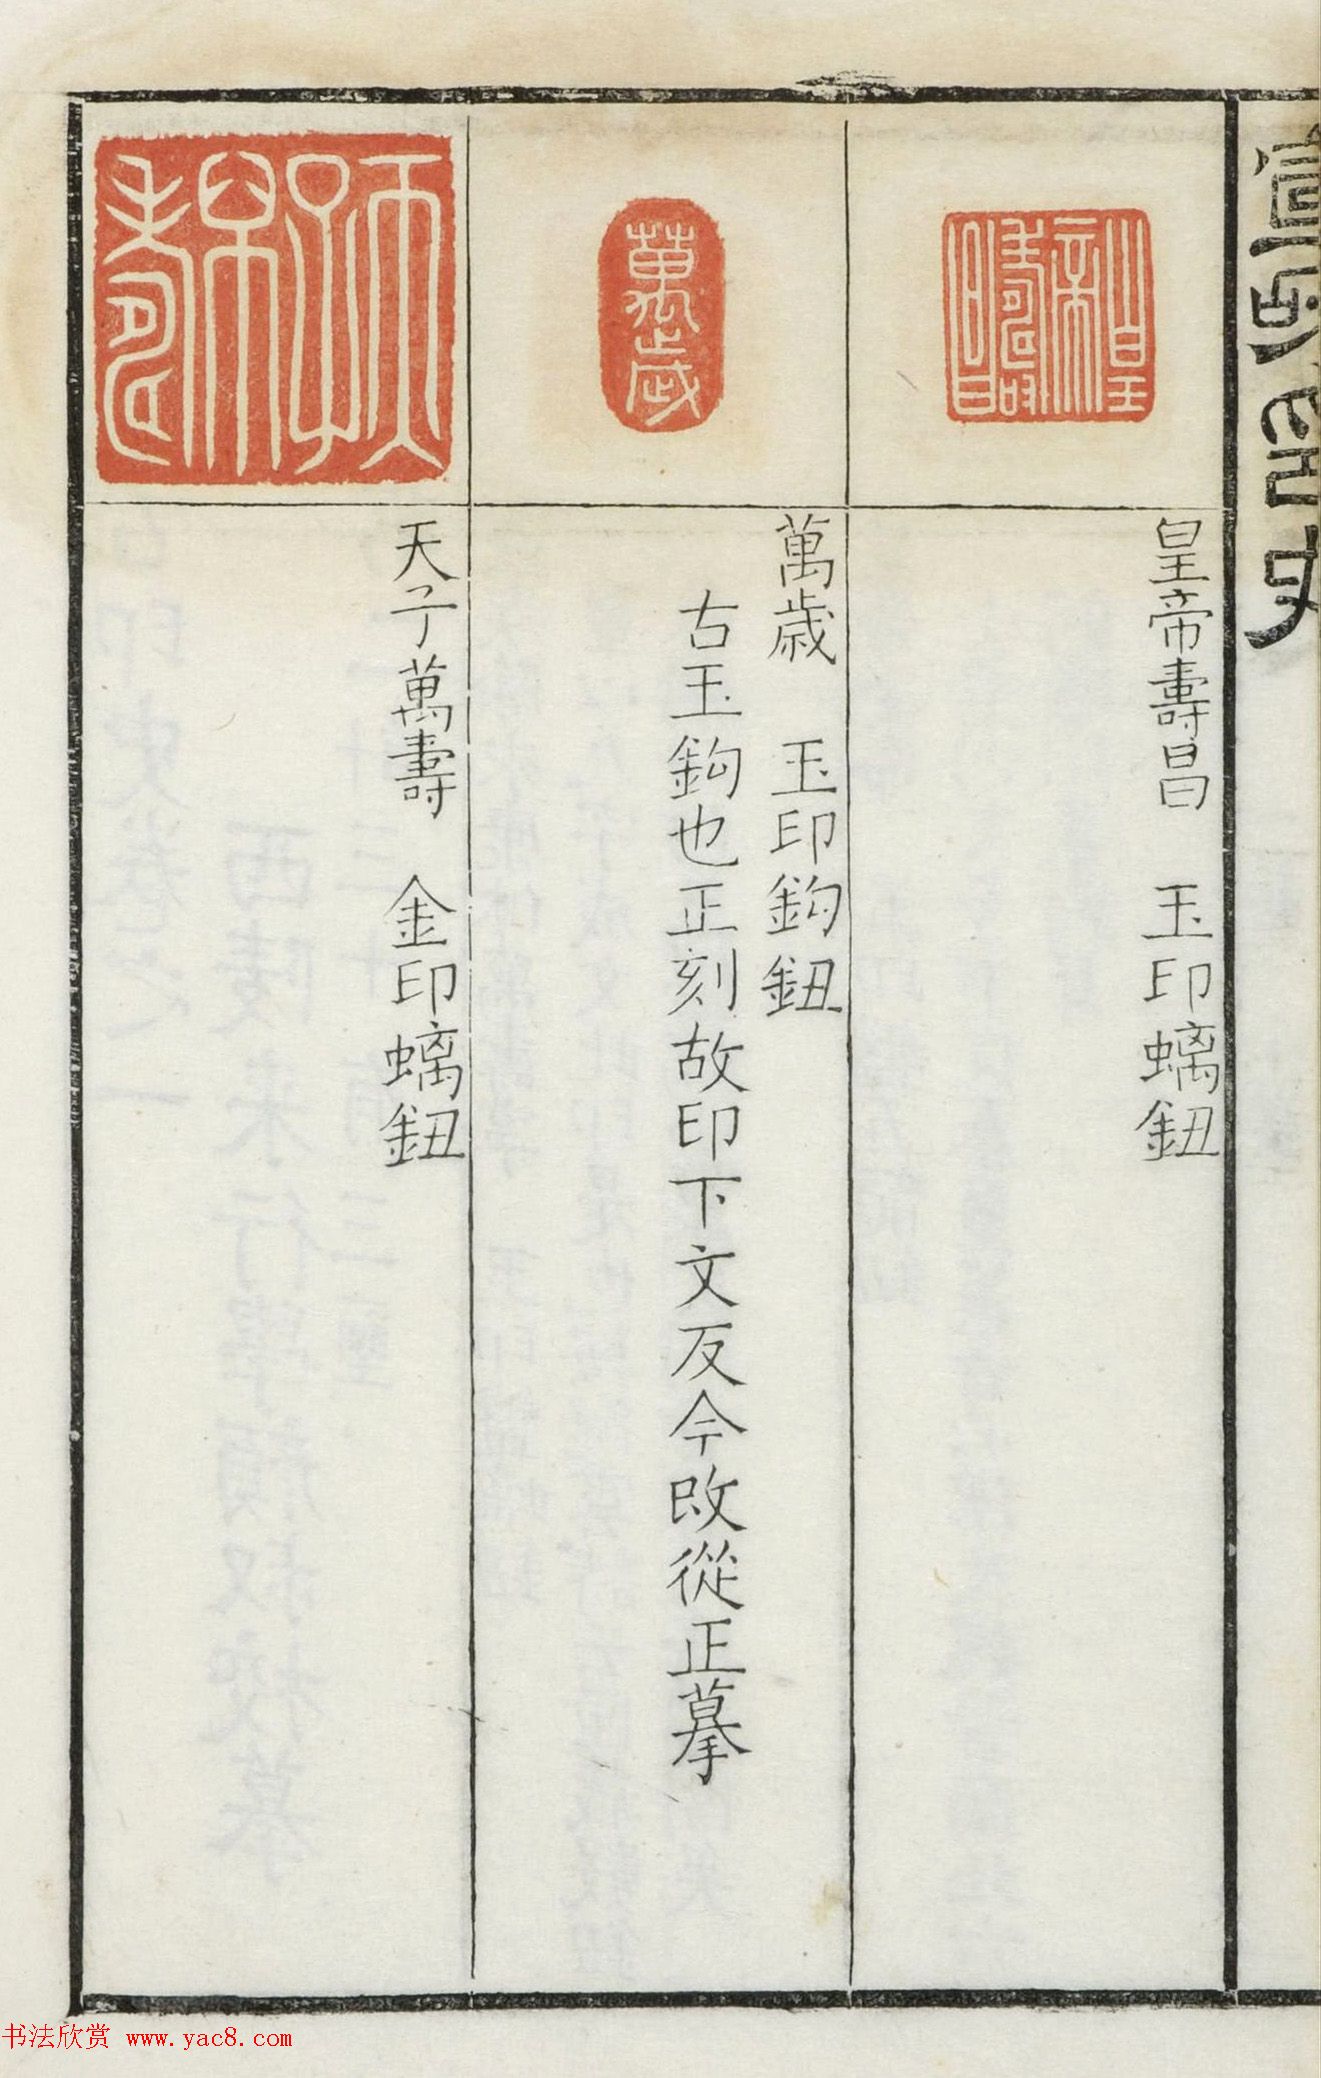 宣和印史
皇帝壽昌
皇帝壽昌　玉印螭鈕
萬歲
萬歲　玉印鈎鈕
古玉鈎也正刻故印下文反今改從正摹
天子萬壽
天子萬壽　金印螭鈕
书法欣赏 www.yac8.com